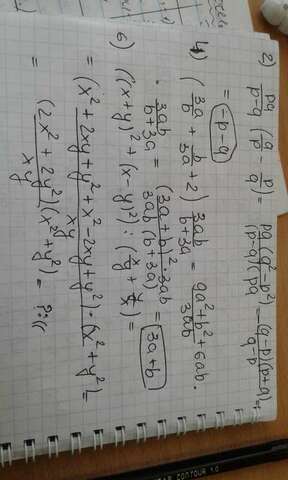 2) pq/(p-q) (q/p - p/q) = pq(q²-p²)/((p-q)pq) = (q-p)(p+q)/(q-p) =
= -p-q
4) (3a/b + b/3a + 2) 3ab/(b+3a) = (9a²+b²+6ab)/3ab ·
· 3ab/(b+3a) = (3a+b)²·3ab/(3ab(b+3a)) = 3a+b
6) ((x+y)²+(x-y)²) : (x/y + y/x) =
= (x²+2xy+y²+x²-2xy+y²)·(x²+y²)/xy =
= (2x²+2y²)(x²+y²)/xy = ?:((
CONTOUR 1.0